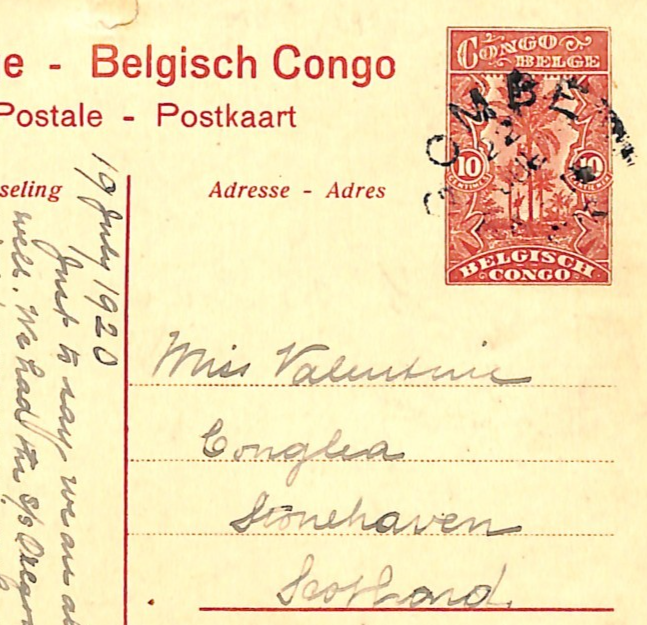 e - Belgisch Congo
Postale - Postkaart
seling
Adresse - Adres
CONGO
BELGE
10
10
BELGISCH
CONGO
Miss Valentine
Stonehaven
Scotland.
19 July 1920
Just to say we are
well. We had the S/S